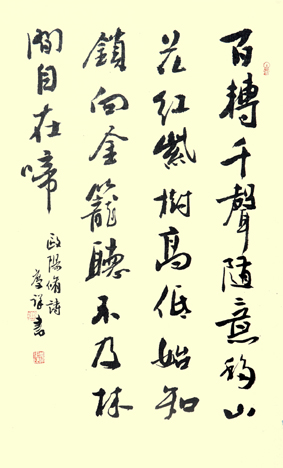 百轉千聲隨意移山
花紅紫樹高低始知
鎖向金籠聽不及林
間自在啼
歐陽脩詩
書